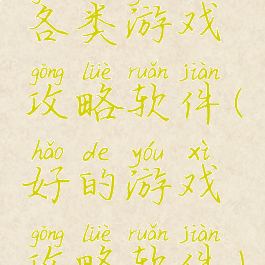 各类游戏
gōng lüè ruǎn jiàn
攻略软件(
hǎo de yóu xì
好的游戏
gōng lüè ruǎn jiàn
攻略软件)